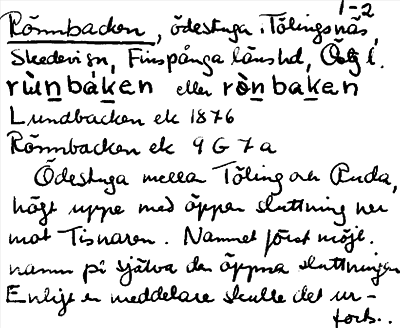 1-2
Rönnbacken, ödestuga i Tölingsnäs,
Skedevi sn, Finspånga länshd, Ög l.
rùn̲bák̲en eller rònbak̲en
Lundbacken ek 1876
Rönnbacken ek 9G7a
Ödestuga mellan Töling och Ruda,
högt uppe med öppen sluttning ner
mot Tisnaren. Namnet först möjl.
namn på själva den öppna sluttningen
Enligt en meddelare skulle det ur-